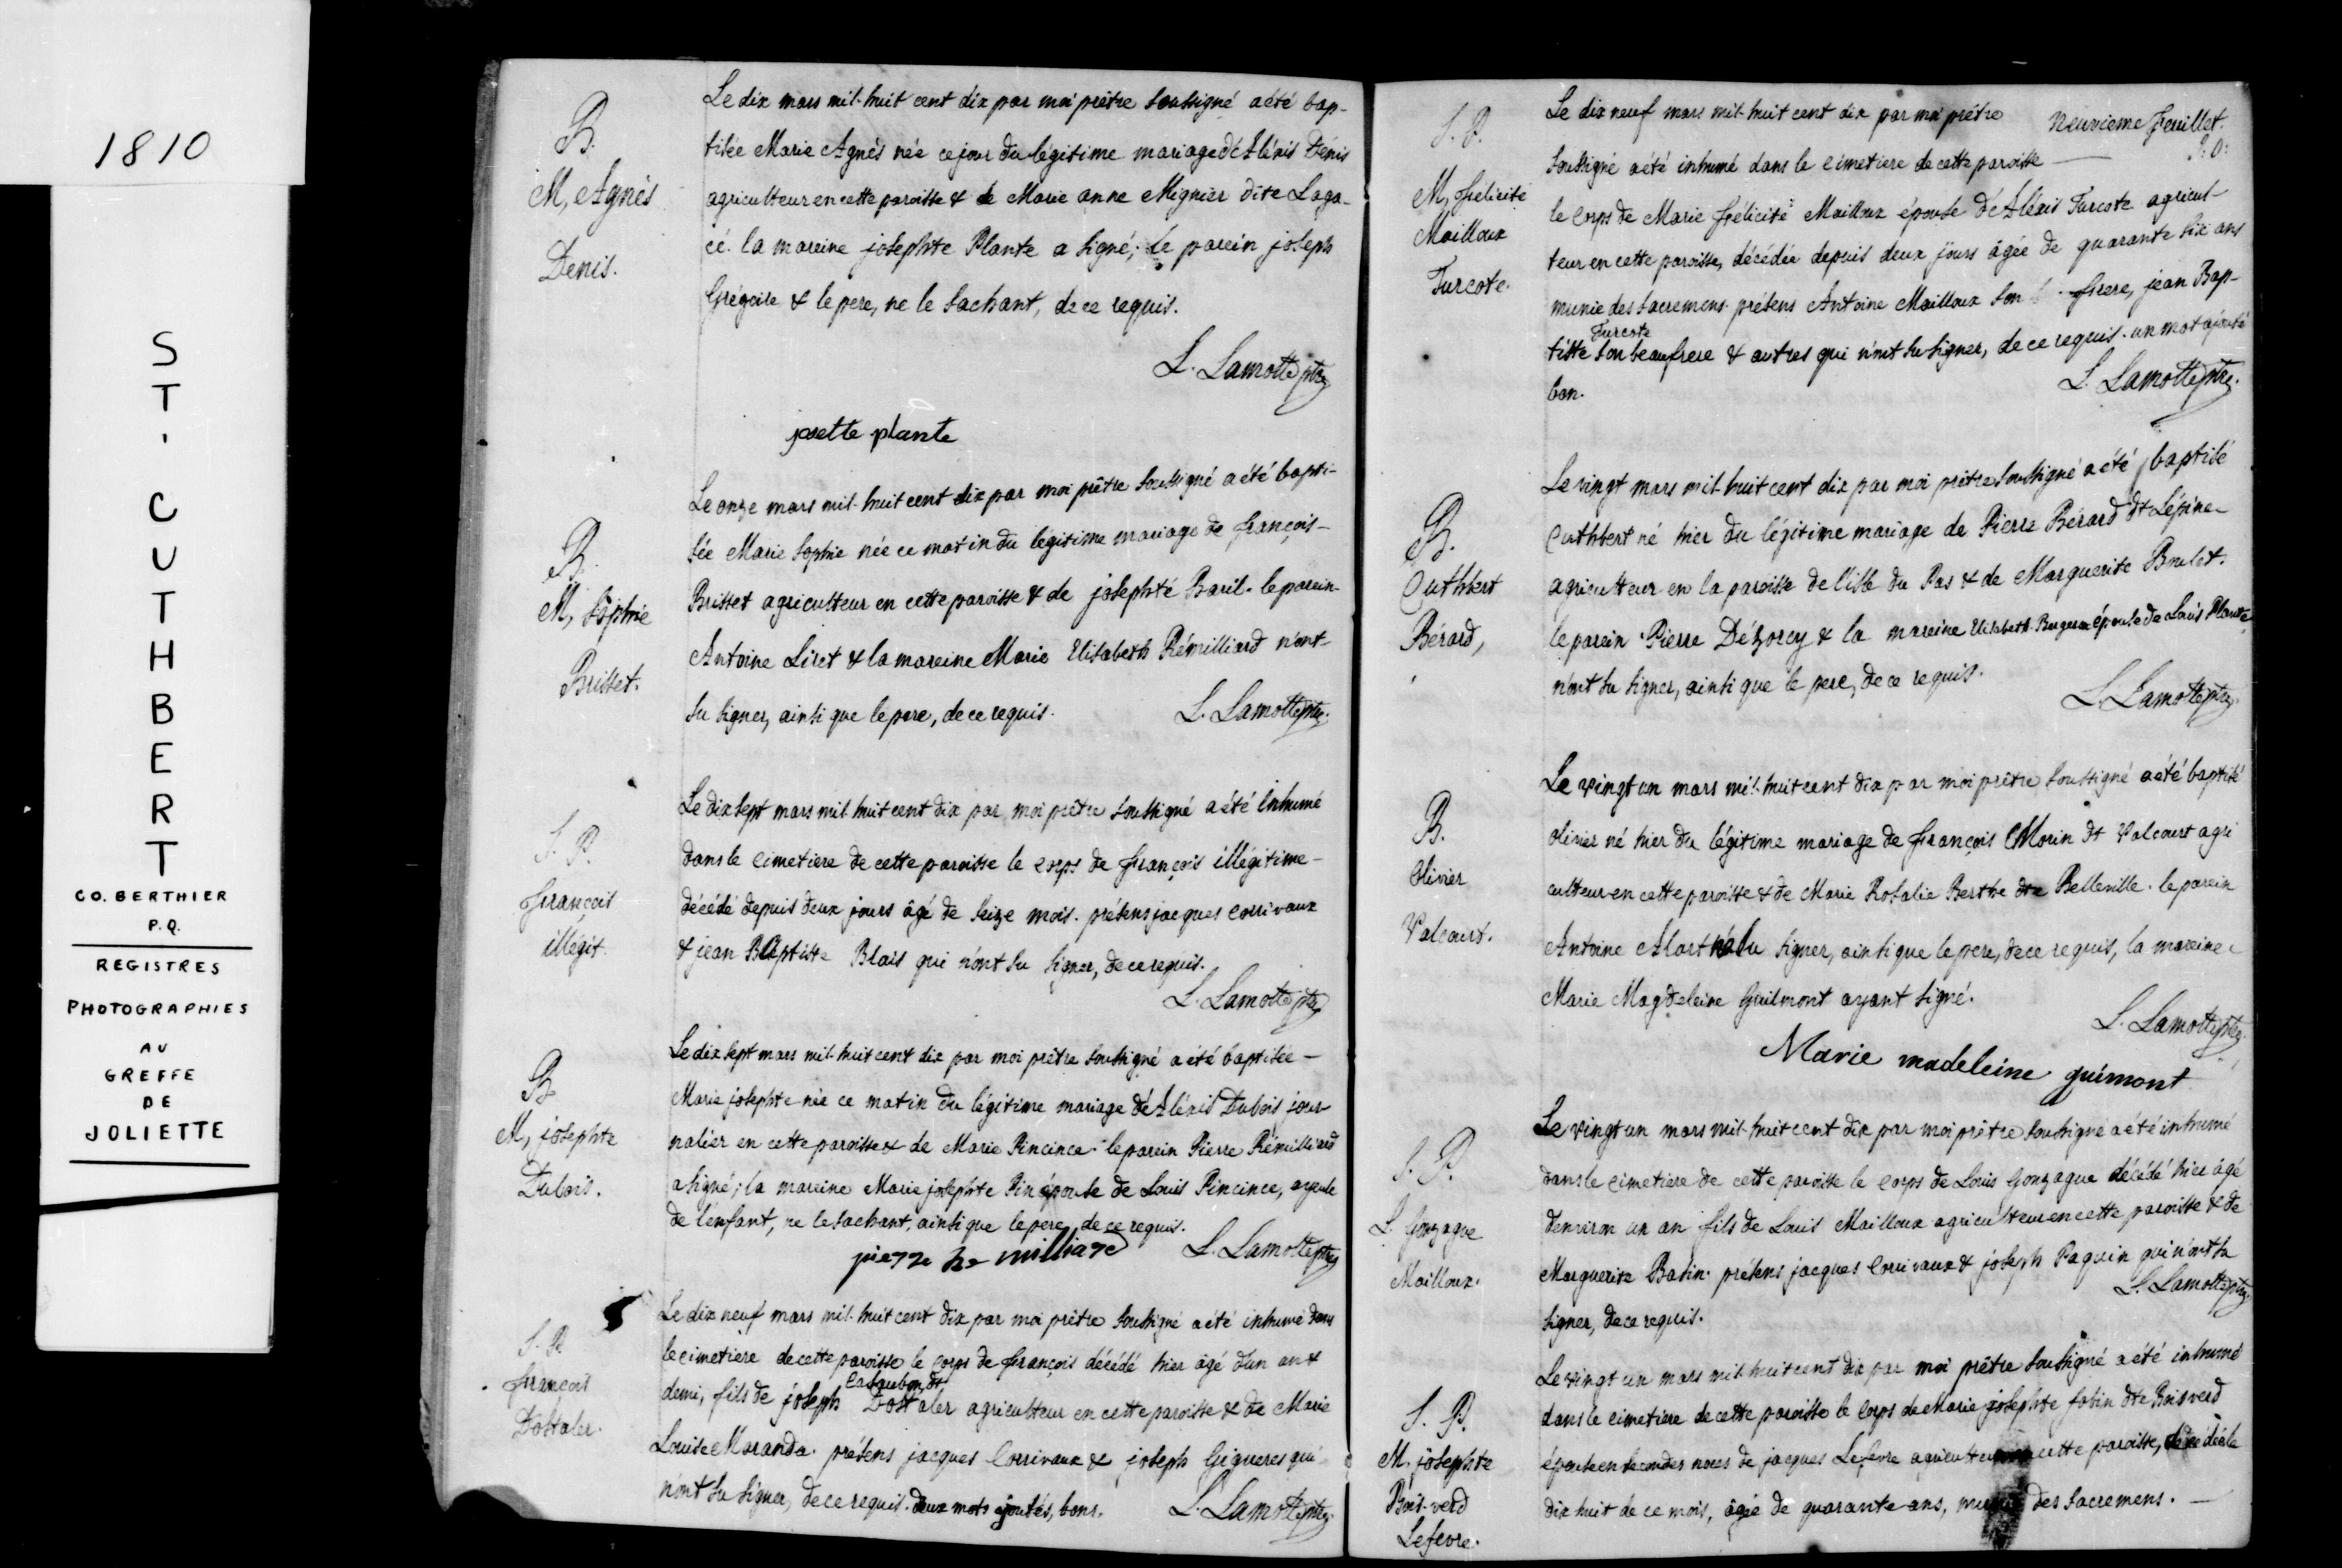 1810
ST. CUTHBERT
CO. BERTHIER
P.Q.
REGISTRES
PHOTOGRAPHIES
AU
GREFFE
DE
JOLIETTE
B.
M, Agnès
Denis.
Le dix mars mil-huit cent dix par moi prêtre soussigné a été bap-
tisée Marie Agnès née ce jour du légitime mariage d'Aléxis Denis
agriculteur en cette paroisse & de Marie anne Mignier dite Laga-
cé. la mareine josephte Plante a signé; le parein joseph
Grégoire & le pere, ne le sachant, de ce requis.
L. Lamotte ptre
josette plante
B.
M, Sophie
Brisset.
Le onze mars mil-huit cent dix par moi prêtre soussigné a été bapti-
sée Marie Sophie née ce matin du légitime mariage de françois-
Brisset agriculteur en cette paroisse & de josephte Baril. le parein-
Antoine Liret & la mareine Marie Elisabeth Rémilliard n'ont
su signer, ainsi que le pere, de ce requis.
L. Lamotte ptre.
S. P.
françois
illégit.
Le dix sept mars mil-huit cent dix par moi prêtre soussigné a été inhumé
dans le cimetiere de cette paroisse le corps de françois illégitime-
décédé depuis deux jours âgé de seize mois. présens jacques Corrivaux
& jean Baptiste Blais qui n'ont su signer, de ce requis.
L. Lamotte ptre
B.
M, josephte
Dubois.
Le dix sept mars mil-huit cent dix par moi prêtre soussigné a été baptisée-
Marie josephte née ce matin du légitime mariage d'Aléxis Dubois jour-
nalier en cette paroisse & de Marie Pincince. le parein Pierre Rémilliard
a signé; la mareine Marie josephte Pin épouse de Louis Pincince, ayeule
de l'enfant, ne le sachant, ainsi que le pere de ce requis.
pierre re milliard
L. Lamotte ptre
S. P.
françois
Dostaler.
Le dix neuf mars mil-huit cent dix par moi prêtre soussigné a été inhumé dans
le cimetiere de cette paroisse le corps de françois décédé hier âgé d'un an &
Casaubon dt
demi, fils de joseph Dostaler agriculteur en cette paroisse & de Marie
Louise Maranda. présens jacques Corrivaux & joseph Gigueres qui
n'ont su signer, de ce requis. deux mots ajoutés, bons.
L. Lamotte ptre
neuvieme feuillet.
S. P.
M, félicité
Mailloux
Turcote.
Le dix neuf mars mil-huit cent dix par moi prêtre
soussigné a été inhumé dans le cimetiere de cette paroisse
le corps de Marie félicité Mailloux épouse d'Aléxis Turcote agricul-
teur en cette paroisse, décédée depuis deux jours âgée de quarante six ans
munie des sacremens. présens Antoine Mailloux son frere, jean Bap-
Turcote
tiste son beaufrere & autres qui n'ont su signer, de ce requis. un mot ajouté
bon.
L. Lamotte ptre.
B.
Cuthbert
Bérard,
Le vingt mars mil-huit cent dix par moi prêtre soussigné a été baptisé
Cuthbert né hier du légitime mariage de Pierre Bérard dt Lépine
agriculteur en la paroisse de l'isle du Pas & de Marguerite Boulet.
le parein Pierre Dézorcy & la mareine Elisabeth Bergeron épouse de Louis Plante
n'ont su signer, ainsi que le pere, de ce requis.
L. Lamotte ptre
B.
Olivier
Valcourt.
Le vingt un mars mil-huit cent dix par moi prêtre soussigné a été baptisé
olivier né hier du légitime mariage de françois Morin dt Valcourt agri
culteur en cette paroisse & de Marie Rosalie Berthe dte Belleville. le parein
Antoine Alart n'a su signer, ainsi que le pere, de ce requis, la mareine
Marie Magdeleine Guilmont ayant signé.
L. Lamotte ptre
Marie madeleine guimont
S. P.
L. Gonzague
Mailloux.
Le vingt un mars mil-huit cent dix par moi prêtre soussigné a été inhumé
dans le cimetiere de cette paroisse le corps de Louis Gonzague décédé hier âgé
d'environ un an fils de Louis Mailloux agriculteur en cette paroisse & de
Marguerite Badin. présens jacques Corrivaux & joseph Paquin qui n'ont su
signer, de ce requis.
L. Lamotte ptre
S. P.
M. josephte
Bois-verd
Lefevre.
Le vingt un mars mil-huit cent dix par moi prêtre soussigné a été inhumé
dans le cimetiere de cette paroisse le corps de Marie josephte jobin dte Boisverd
épouse en secondes noces de jacques Lefevre agriculteur cette paroisse, décédée le
dix huit de ce mois, âgée de quarante ans, munie des sacremens.